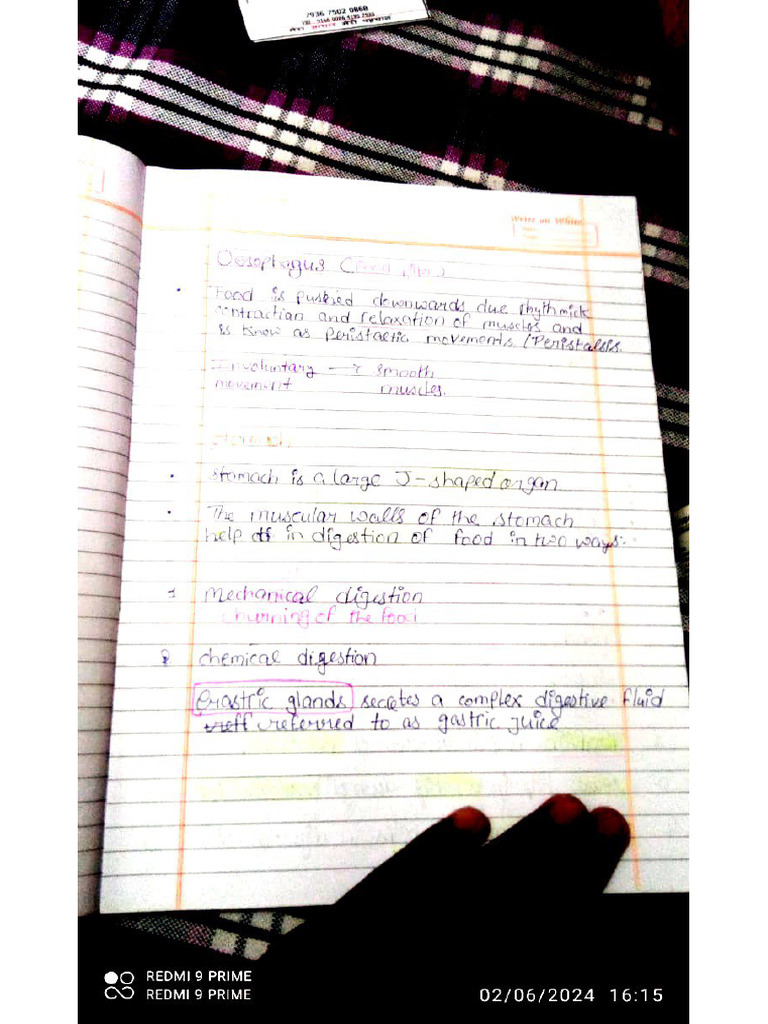 7936 7502 0868
Write on White
Oesophagus (Food pipe)
Food is pushed downwards due rhythmick
contraction and relaxation of muscles and
is know as peristaetic movements / Peristalsis.
Involuntary → smooth
movement muscles.
stomach
stomach is a large J-shaped organ
The muscular walls of the stomach
help off in digestion of food in two ways:
1 mechanical digestion
churning of the food
2 chemical digestion
Gastric glands secretes a complex digestive fluid
reff referred to as gastric juice
REDMI 9 PRIME
REDMI 9 PRIME
02/06/2024 16:15